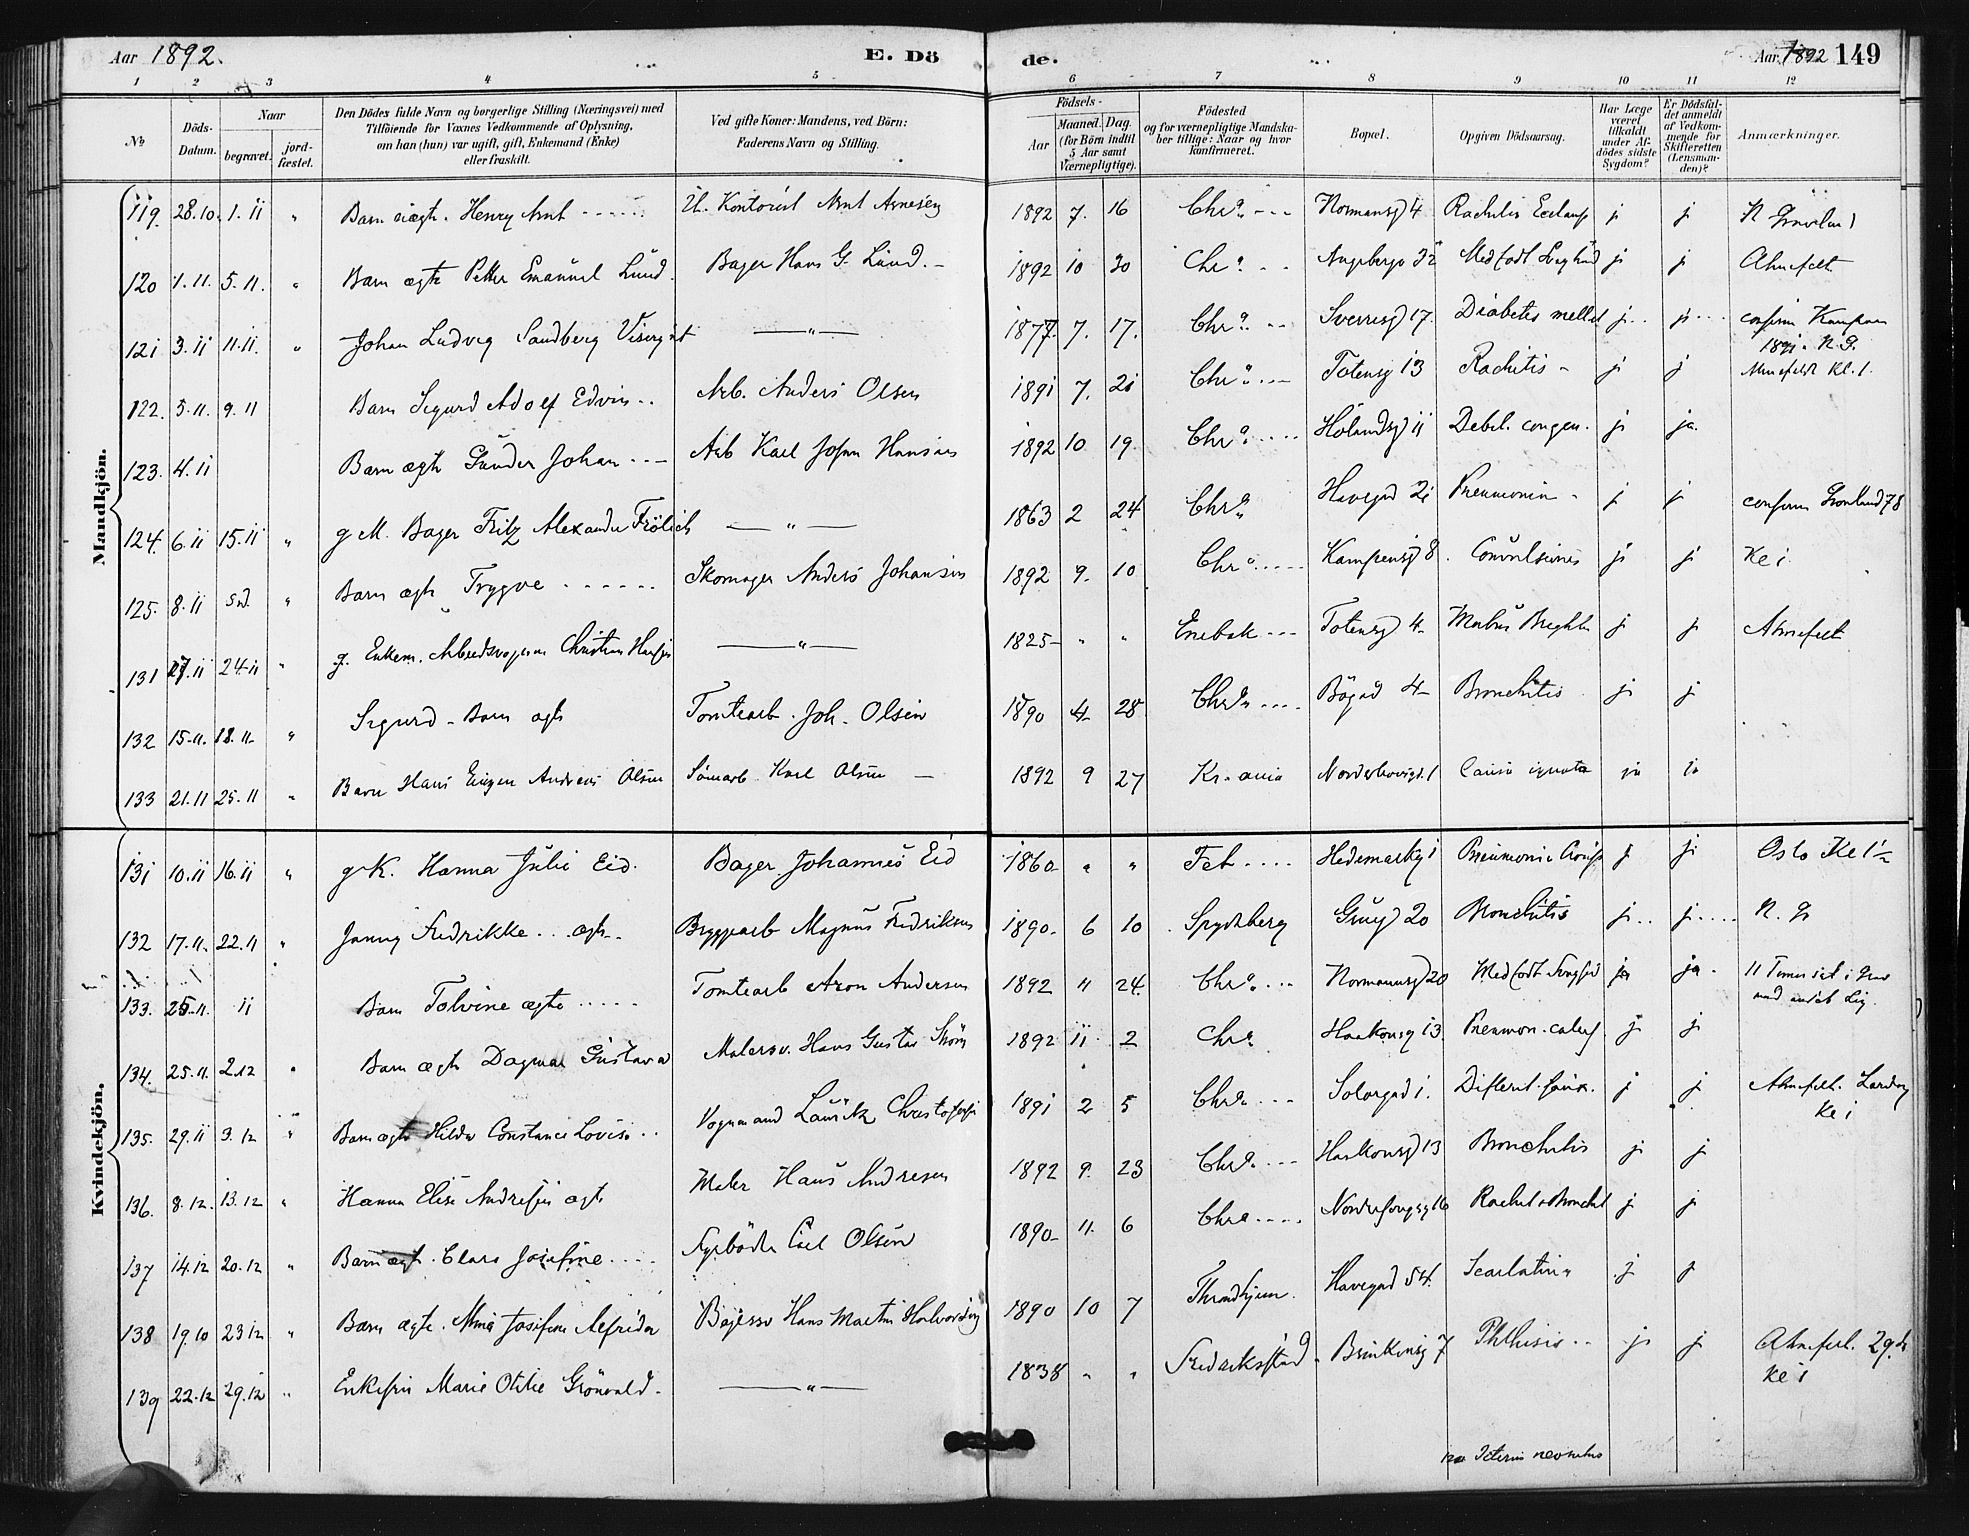 Aar 1892. E. Döde. Aar 1892 149
1 2 3 4 5 6 7 8 9 10 11 12
No
Döds-Datum.
Naar
begravet.
jord-fæstet.
Den Dödes fulde Navn og borgerlige Stilling (Næringsvei) med
Tilföiende for Voxnes Vedkommende af Oplysning,
om han (hun) var ugift, gift, Enkemand (Enke)
eller fraskilt.
Ved gifte Koner: Mandens, ved Börn:
Faderens Navn og Stilling.
Födsels-
Aar
Maaned. Dag.
(for Börn indtil
5 Aar samt
Værnepligtige).
Födested
og for værnepligtige Mandska-
ber tillige: Naar og hvor
konfirmeret.
Bopæl.
Opgiven Dödsaarsag.
Har Læge
været
tilkaldt
under Af-
dödes sidste
Sygdom?
Er Dödsfal-
det anmeldt
af Vedkom-
mende for
Skifteretten
(Lensman-
den)?
Anmærkninger.
Mandkjön.
119. 28.10. 1. 11 " Barn uægte. Henry Arnt - - - U. Kontorist Arnt Arnesen 1892 7. 16 Chra. - - Normansg 4 Rachitis j j
120 1.11. 5.11. " Barn ægte Petter Emanuel Lund. Bager Hans G. Lund. - 1892 10 30 Chra. - - Medfödt j j Ahnefelt
121 3.11 11.11. " Johan Ludvig Sandberg Visergut — " — 1877. 7. 17. Chra. - - Sverresg 17. Diabetis mellit j.. j... confirm Kampen
1891. N. G.
122. 5.11. 9.11 Barn Sigurd Adolf Edvin - - Arb. Anders Olsen 1891 7. 21 Chra. - - Totensg 13 Rachitis - j j Ahnefeldt Kl. 1.
123. 4.11 Barn ægte Gunder Johan - - - Arb Karl Johan Hansen 1892 10 19. Chra. - - - Hölandsg 11 Debil. congen. j ja.
124. 6.11 15.11 " g M. Bager Fritz Alexander Frölich — " — 1863 2 24 Chra. Havegad 21 Pneumonia - j j confirm Grönland 78
125. 8.11 sd. " Barn ægte Trygve - - - - - Skomager Anders Johansen 1892 9. 10 Chra. - - - Kampensg 8. Convulsiones j j Kl 1
131 24.11 " g. Enkem. Arbeidsvognm Christian Hansen — " — 1825- " " Enebak - - - Totensg 4- Morbus Brightii j j Ahnefelt
132 15.11. 18.11. " Sigurd - Barn ægte Tomtearb. Joh. Olsen 1890 4- 28 Chra. - - - Bögad 4- Bronchitis j j
133 21.11 25.11 " Barn Hans Eugen Andreas Olsen Karl Olsen — 1892 9 27 Kr.ania Norderhovsgd. 1 Causa ignota ja ja
Kvindekjön.
131 10.11 16.11 " g K. Hanna Julie Eid. Bager Johannes Eid 1860- " " Fet - - - - Hedemarksg 1 Pneumonia Croup j j Oslo Kl 1½
132 17.11. 22.11 " Jenny Fredrikke - - ægte - Bryggearb Magnus Fredriksen 1890- 6 10 Spydeberg Grung 20 Bronchitis j.. j.... N. G
133. 25.11. 11 Barn Tolvine ægte - - - - Tomtearb Aron Andersen 1892 11 24. Chra. - - - Normannsg 20 Medfödt ja ja. 11 Timer
med andet Lig.
134. 25.11. 2.12 " Barn ægte Dagmar Gustava Malersv. Hans Gustav 1892 11. 2 Chra Haakonsg 13. Pneumon. catarh. j j
135. 29.11 3.12 " Barn ægte Hilda Constance Lovise - - Vognmand Lauritz Christofersen 1891 2 5 Chra. - - - Solorgad 1. Difterit. fauc. j j Ahnefelt. Lördag
Kl 1
136. 8.12. 13.12 " Hanna Elise Andresen ægte Maler Hans Andresen 1892 9. 23 Chra. - - - Haakonsg 13 Bronchitis j j
137 14.12 20.12 " Barn ægt. Clara Josefine - - - - Fyrböder Carl Olsen 1890- 11. 6 Chra - - - - 16 Rachit & Bronchit j j
138 19.10 23.12 " Barn ægte. Anna Josefine Alfrida Hans Martin Halvorsen 1890 10 7 Throndhjem. Havegad 54. Scarlatina j j
139 22.12 29.12 " Enkefru Marie Otilie Grönvold. — " — 1838 " " Fredriksstad. 7 Phthisis - - j j Ahnefelt. 29.
Kl 1
120 Icterus neonatus